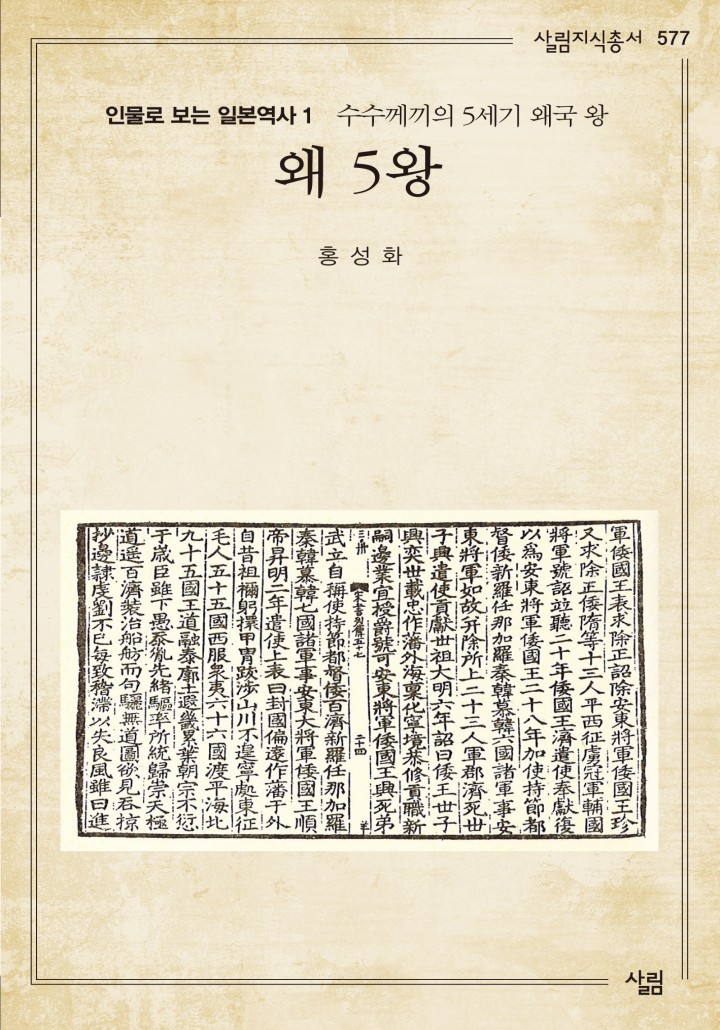 살림지식총서 577
인물로 보는 일본역사 1 수수께끼의 5세기 왜국 왕
왜 5왕
홍성화
軍倭國王表求除正詔除安東將軍倭國王珍
又求除正倭隋等十三人平西征虜冠軍輔國
將軍號詔並聽二十年倭國王濟遣使奉獻復
以為安東將軍倭國王二十八年加使持節都
督倭新羅任那加羅秦韓慕韓六國諸軍事安
東將軍如故并除所上二十三人軍郡濟死世
子興遣使貢獻世祖大明六年詔曰倭王世子
興奕世載忠作藩外海稟化寧境恭修貢職新
嗣邊業宜授爵號可安東將軍倭國王興死弟
宋書列傳五十七 二十四
武立自稱使持節都督倭百濟新羅任那加羅
秦韓慕韓七國諸軍事安東大將軍倭國王順
帝昇明二年遣使上表曰封國偏遠作藩于外
自昔祖禰躬擐甲冑跋涉山川不遑寧處東征
毛人五十五國西服衆夷六十六國渡平海北
九十五國王道融泰廓土遐畿累葉朝宗不愆
于歲臣雖下愚忝胤先緒驅率所統歸崇天極
道遥百濟裝治船舫而句驪無道圖欲見吞掠
抄邊隸虔劉不已每致稽滯以失良風雖曰進
살림